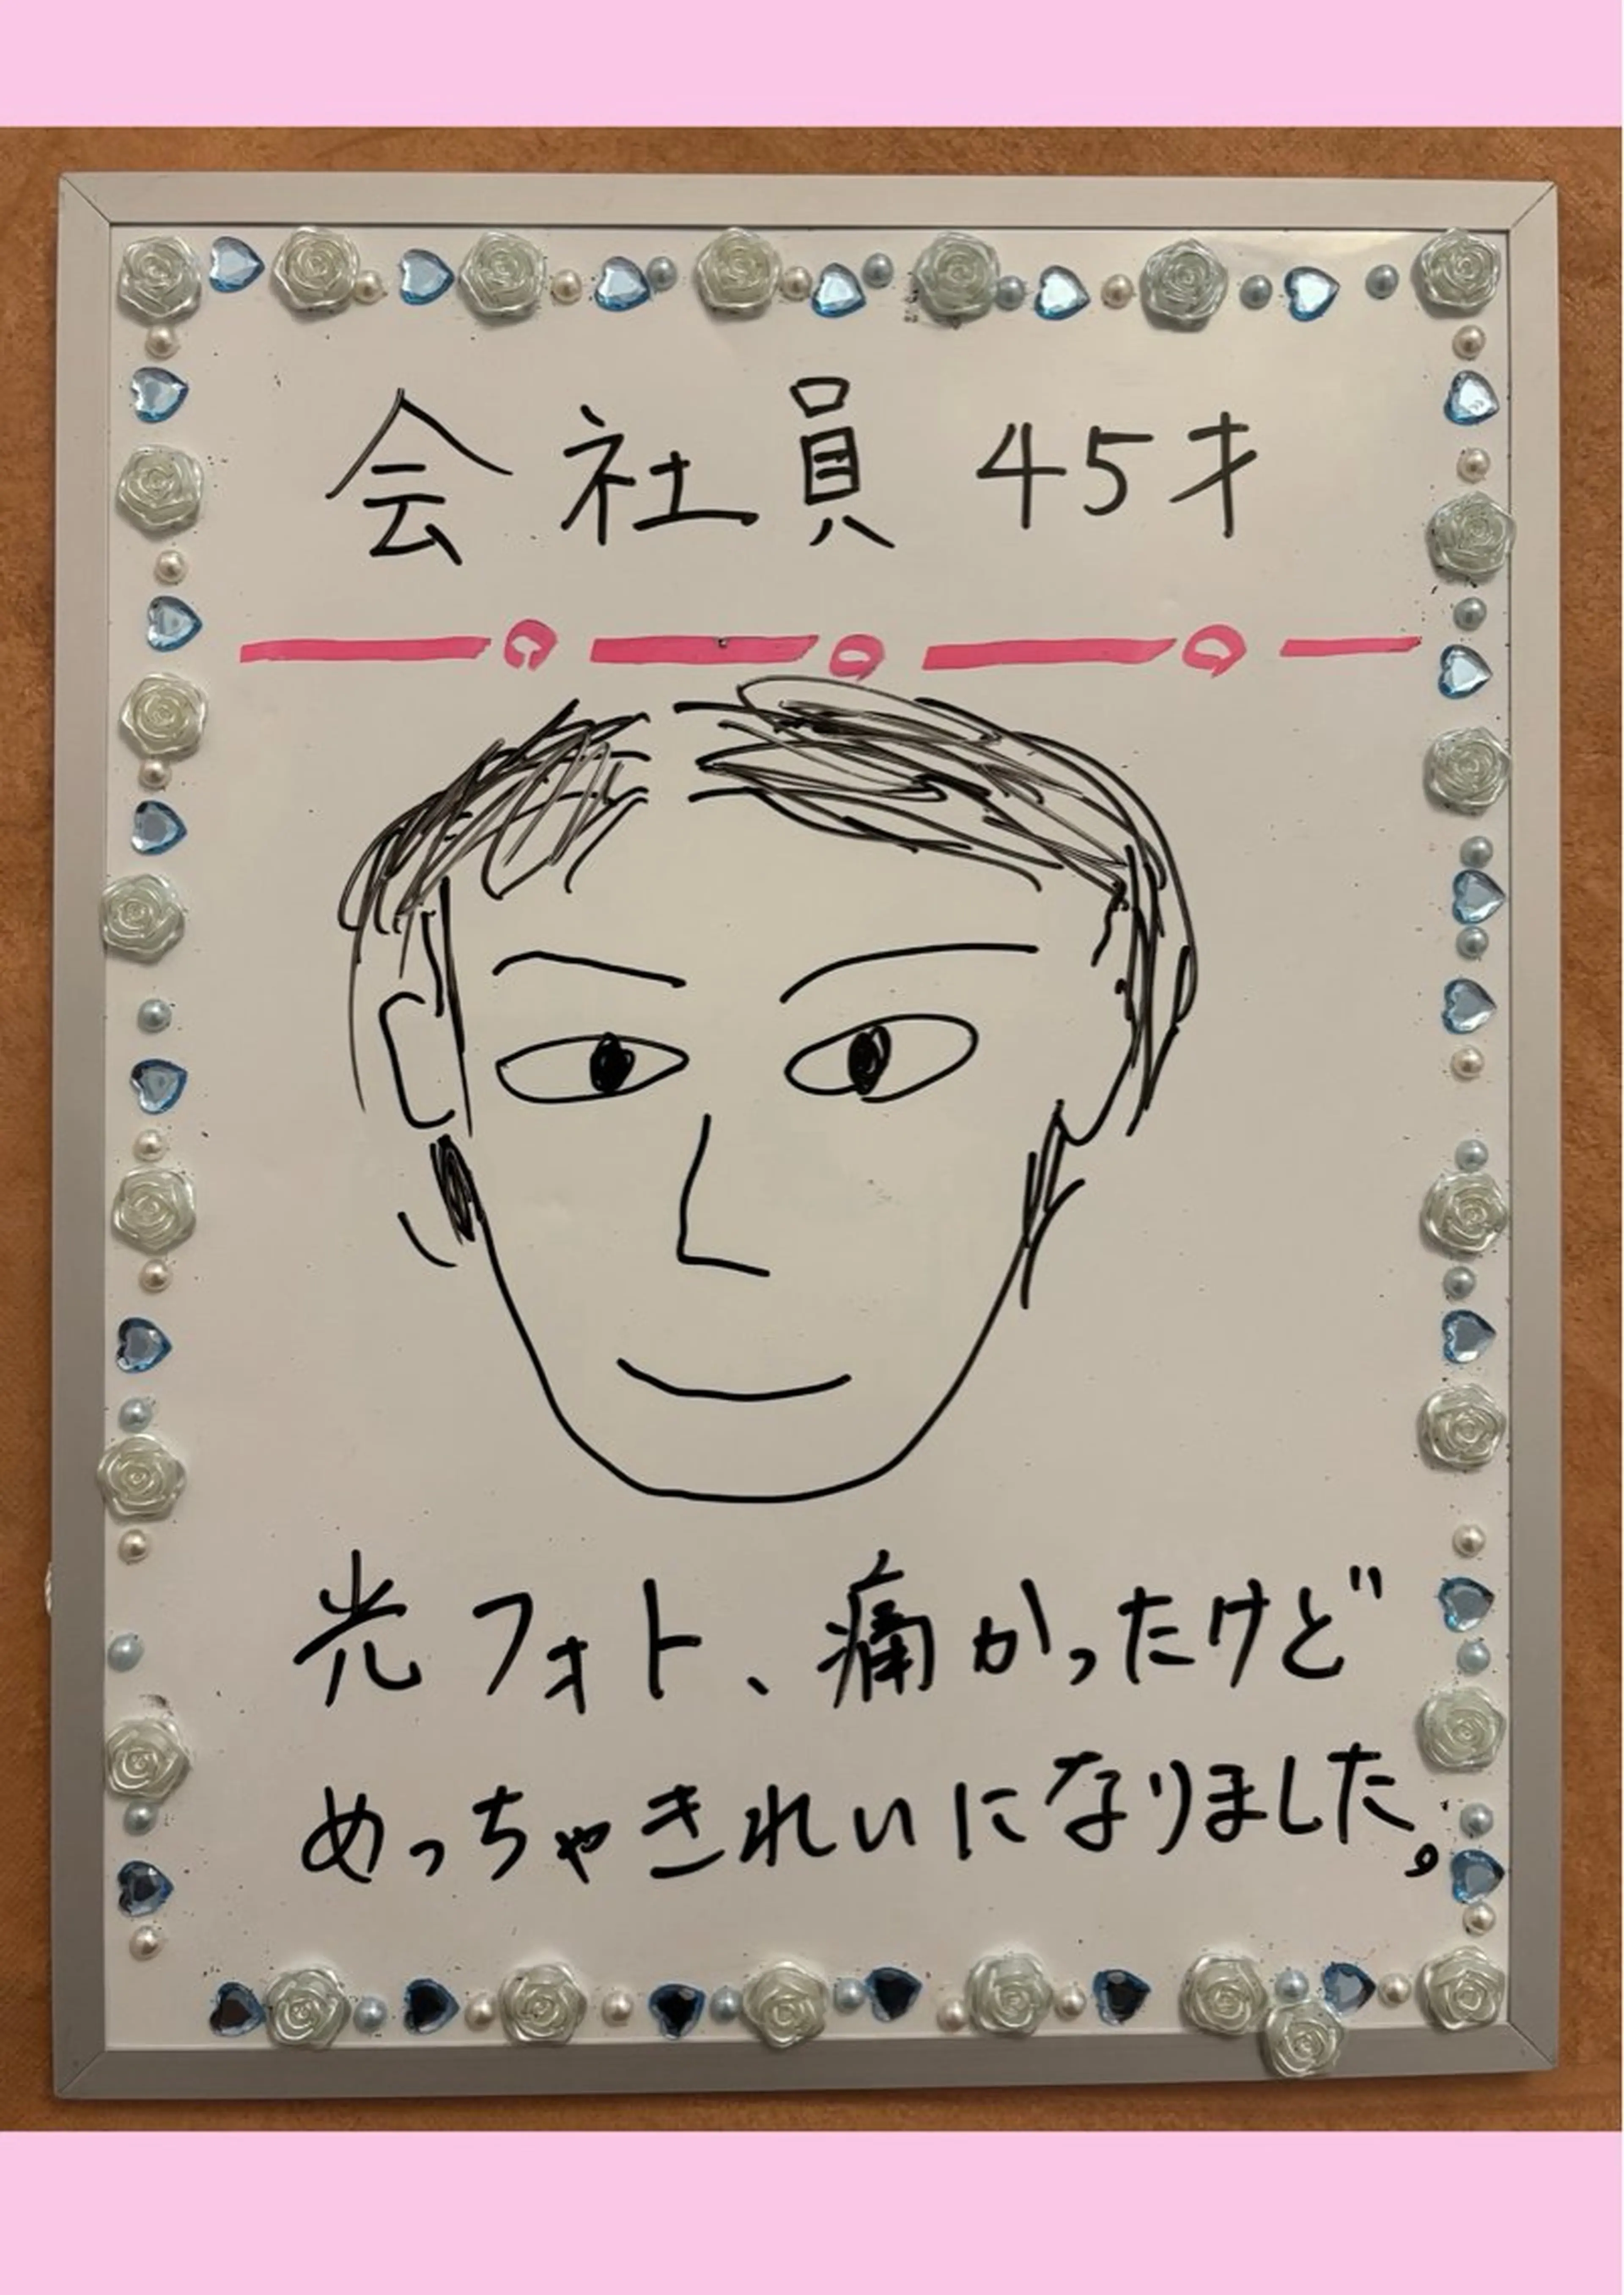 会社員 45才
光フォト、痛かったけど
めっちゃきれいになりました。